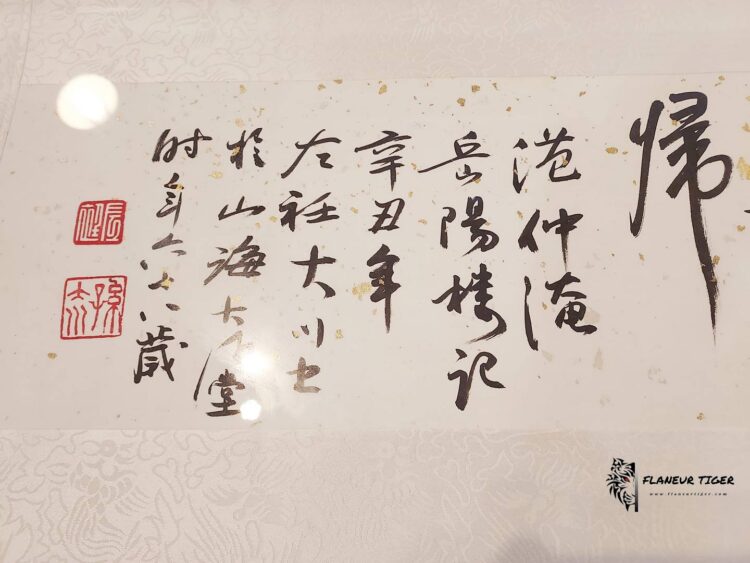 帰
范仲淹
岳陽樓記
辛丑年
左衽大川书
於山海大堂
时年六十八歲
FLANEUR TIGER
www.flaneurtiger.com